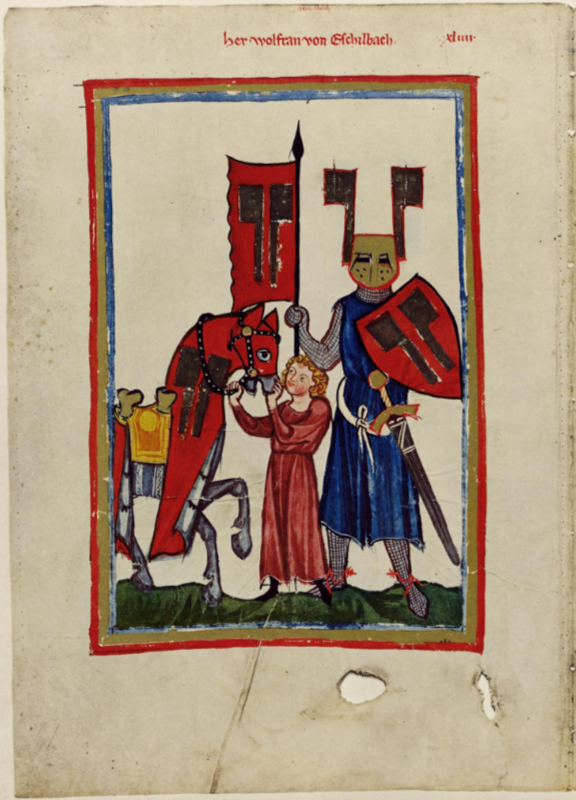 her wolfran von Eschilbach. xliiii·